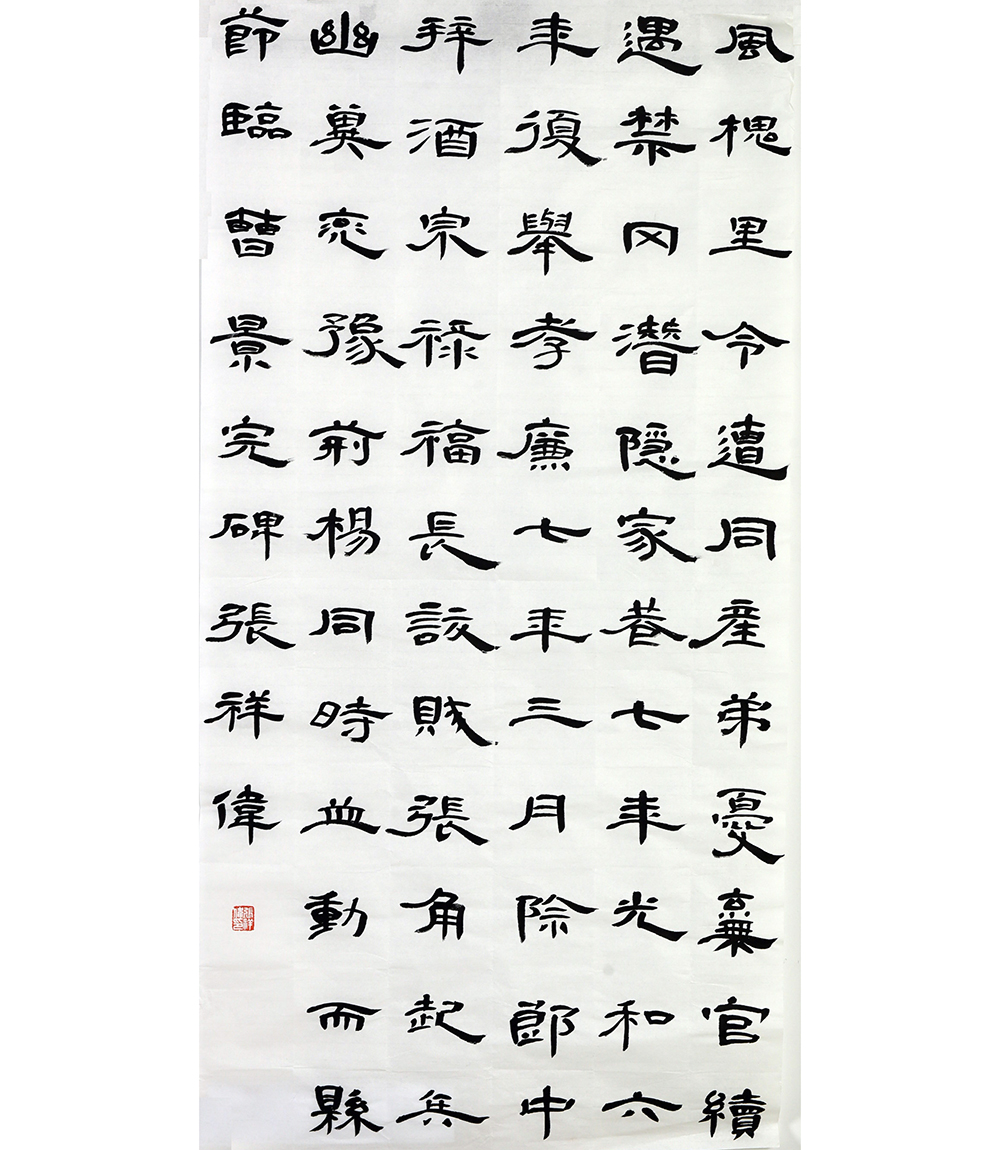 風槐里令遭同產弟憂棄官續
遇禁冈潛隱家巷七年光和六
年復舉孝廉七年三月除郎中
拜酒泉祿福長訞賊張角起兵
幽冀兖豫荊楊同時並動而縣
節臨曹景完碑張祥偉